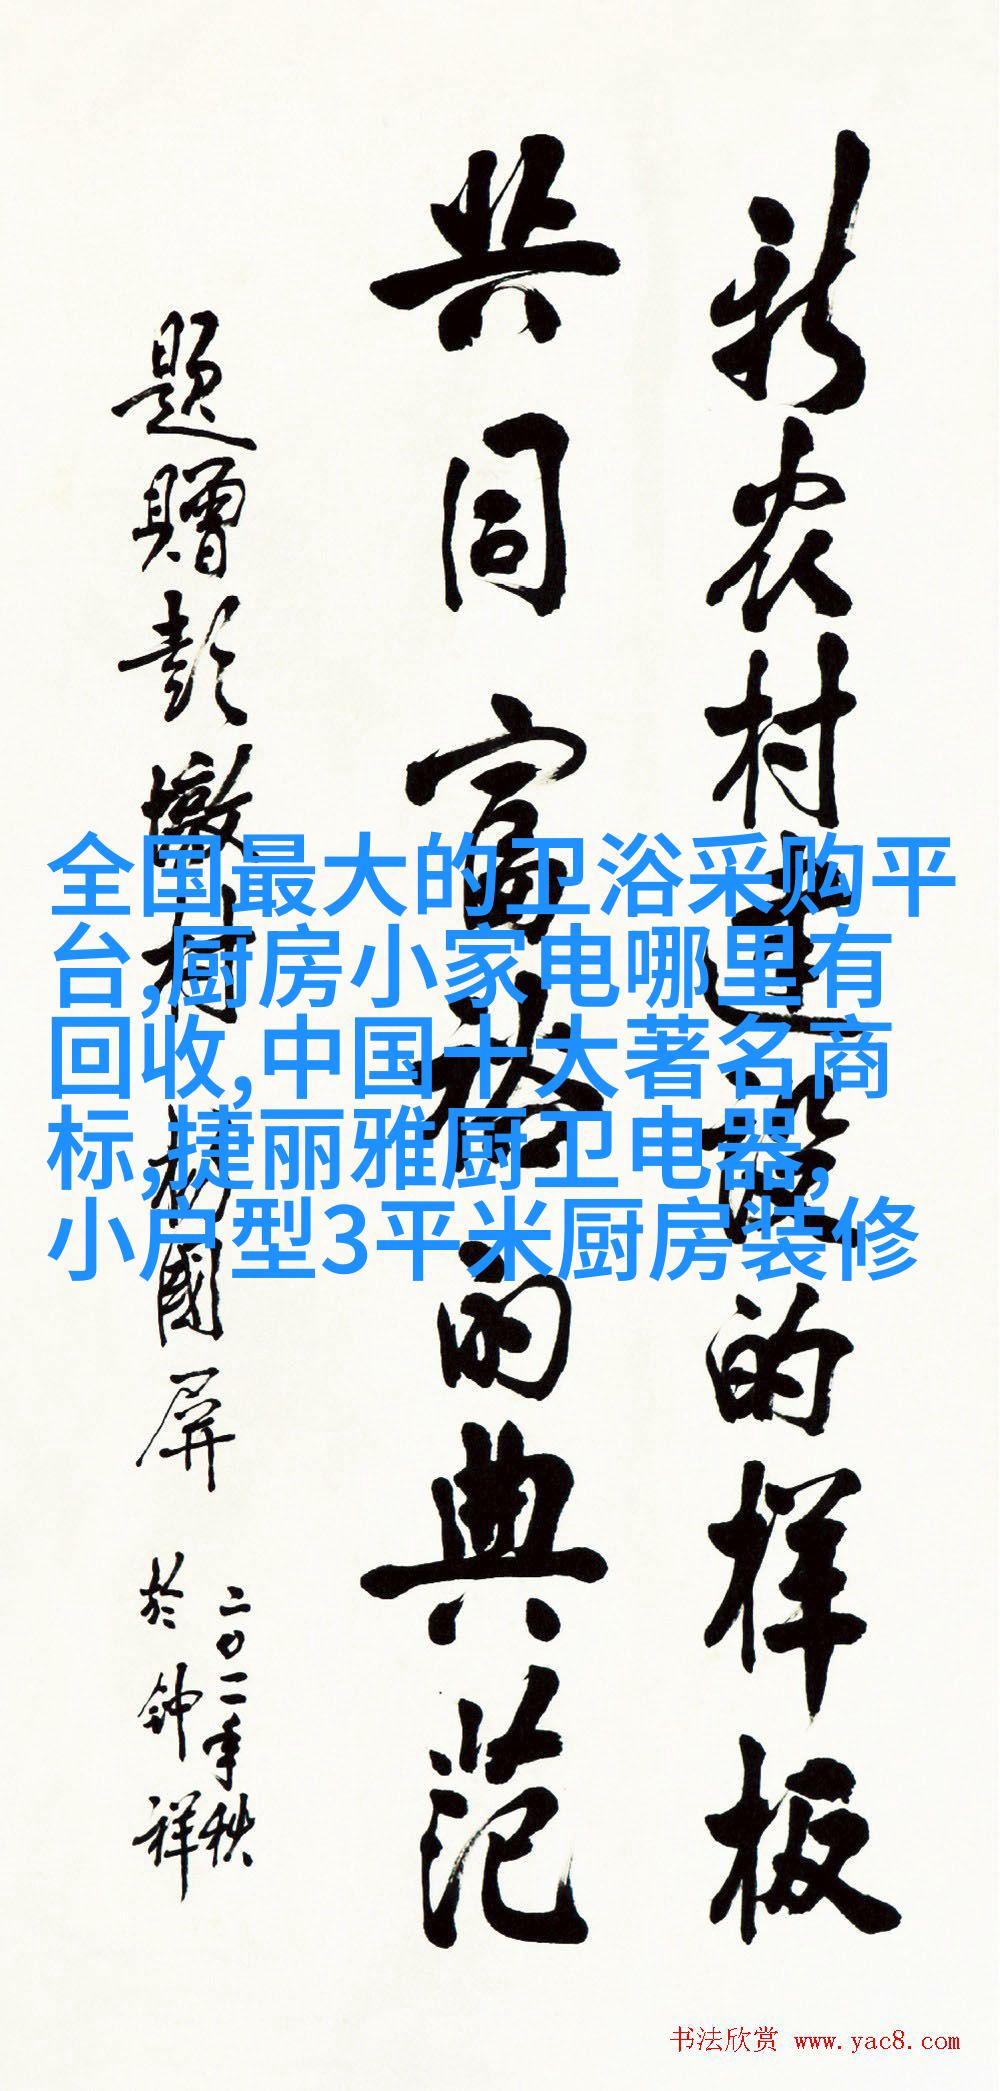 新农村建设的样板
共同富裕的典范
题赠彭墩村 杨国屏
二〇一一年秋
於钟祥
全国最大的卫浴采购平
台,厨房小家电哪里有
回收,中国十大著名商
标,捷丽雅厨卫电器,
小户型3平米厨房装修
书法欣赏 www.yac8.com